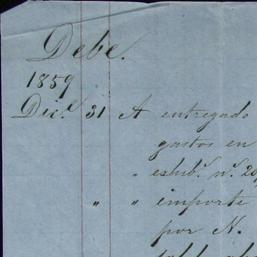 Debe.
1859
Dic.e 31 A entregado
gastos en
" exhib.n n.o 20
" " importe
por N.